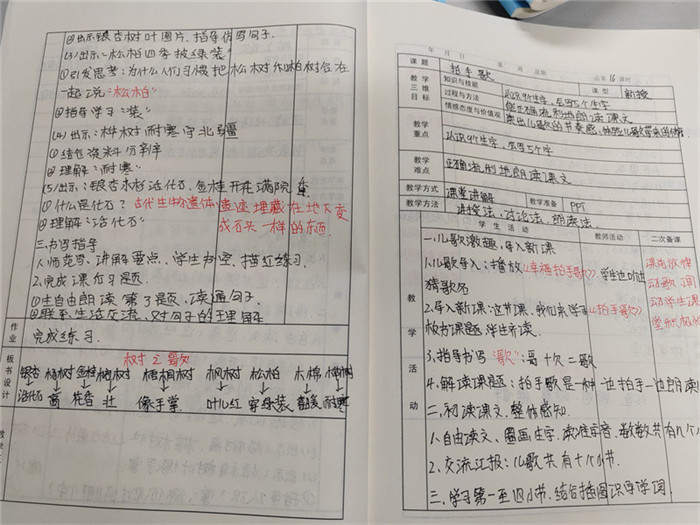 ④出示银杏树叶图片,指导仿写句子.
(3)出示:"松柏四季披绿装"
①引发思考:为什么人们习惯把松树和柏树合在
一起说:"松柏"
②指导学习:"装"
(4)出示:桦树耐寒守北疆
①结合资料
②理解:"耐寒"
(5)出示:银杏水杉活化石,金桂开花满院香
①什么是化石?古代生物遗体、遗迹埋藏在地下变
成石头一样的东西.
②理解:"活化石"
三.书写指导
1.师范写、讲解要点,学生书空,描红练习.
2.完成课后习题
①生自由朗读第3题,读通句子.
②联系生活交流,对句子的理解
作业
完成练习.
板书设计
树之歌
银杏 梧桐树 枫树 松柏 木棉
活化石 高 壮 像手掌 叶儿红 穿绿装 耐寒
年 月 日 星期 总第16课时
课题 拍手歌
教学三维目标
知识与技能 课型 新授
过程与方法 认识9个生字,会写5个生字
情感态度与价值观 能正确流利地朗读课文
读出儿歌的节奏感,
教学重点 认识9个生字,会写5个字
教学难点 正确流利地朗读课文
教学方式 课堂讲解 教学准备 PPT
教学方法 讲授法,讨论法,朗读法.
教学活动
学生活动 教师活动 二次备课
一.儿歌激趣,导入新课
1.儿歌导入:播放《幸福拍手歌》,学生边听边
猜歌名
2.导入新课:这节课,我们来学习《拍手歌》
板书课题,学生齐读.
3.指导书写"歌":哥+欠=歌
4.解读课题:拍手歌是一种一边拍手一边朗读
二.初读课文,整体感知.
1.自由读文,圈画生字,读准字音,数数共有几个小
2.交流汇报:儿歌共有十个小节.
三.学习第一至四小节,结合插图识字学词.